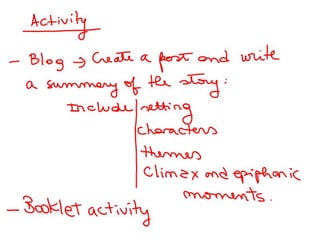 Activity
- Blog → Create a post and write
a summary of the story:
Include | setting
characters
themes
Climax and epiphanic
moments.
- Booklet activity